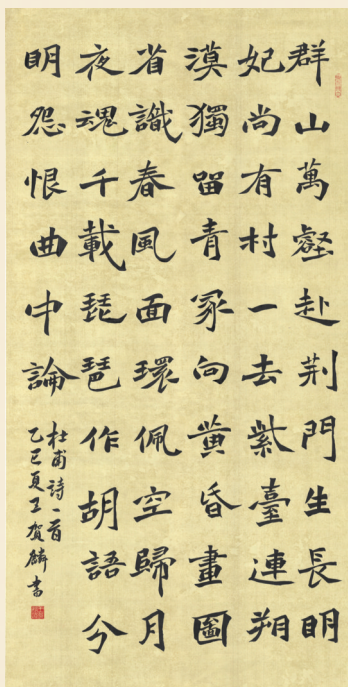 群山萬壑赴荆門生長明
妃尚有村一去紫臺連朔
漠獨留青冢向黄昏畫圖
省識春風面環佩空歸月
夜魂千載琵琶作胡語分
明怨恨曲中論
杜甫詩一首
乙巳夏王賀麟書